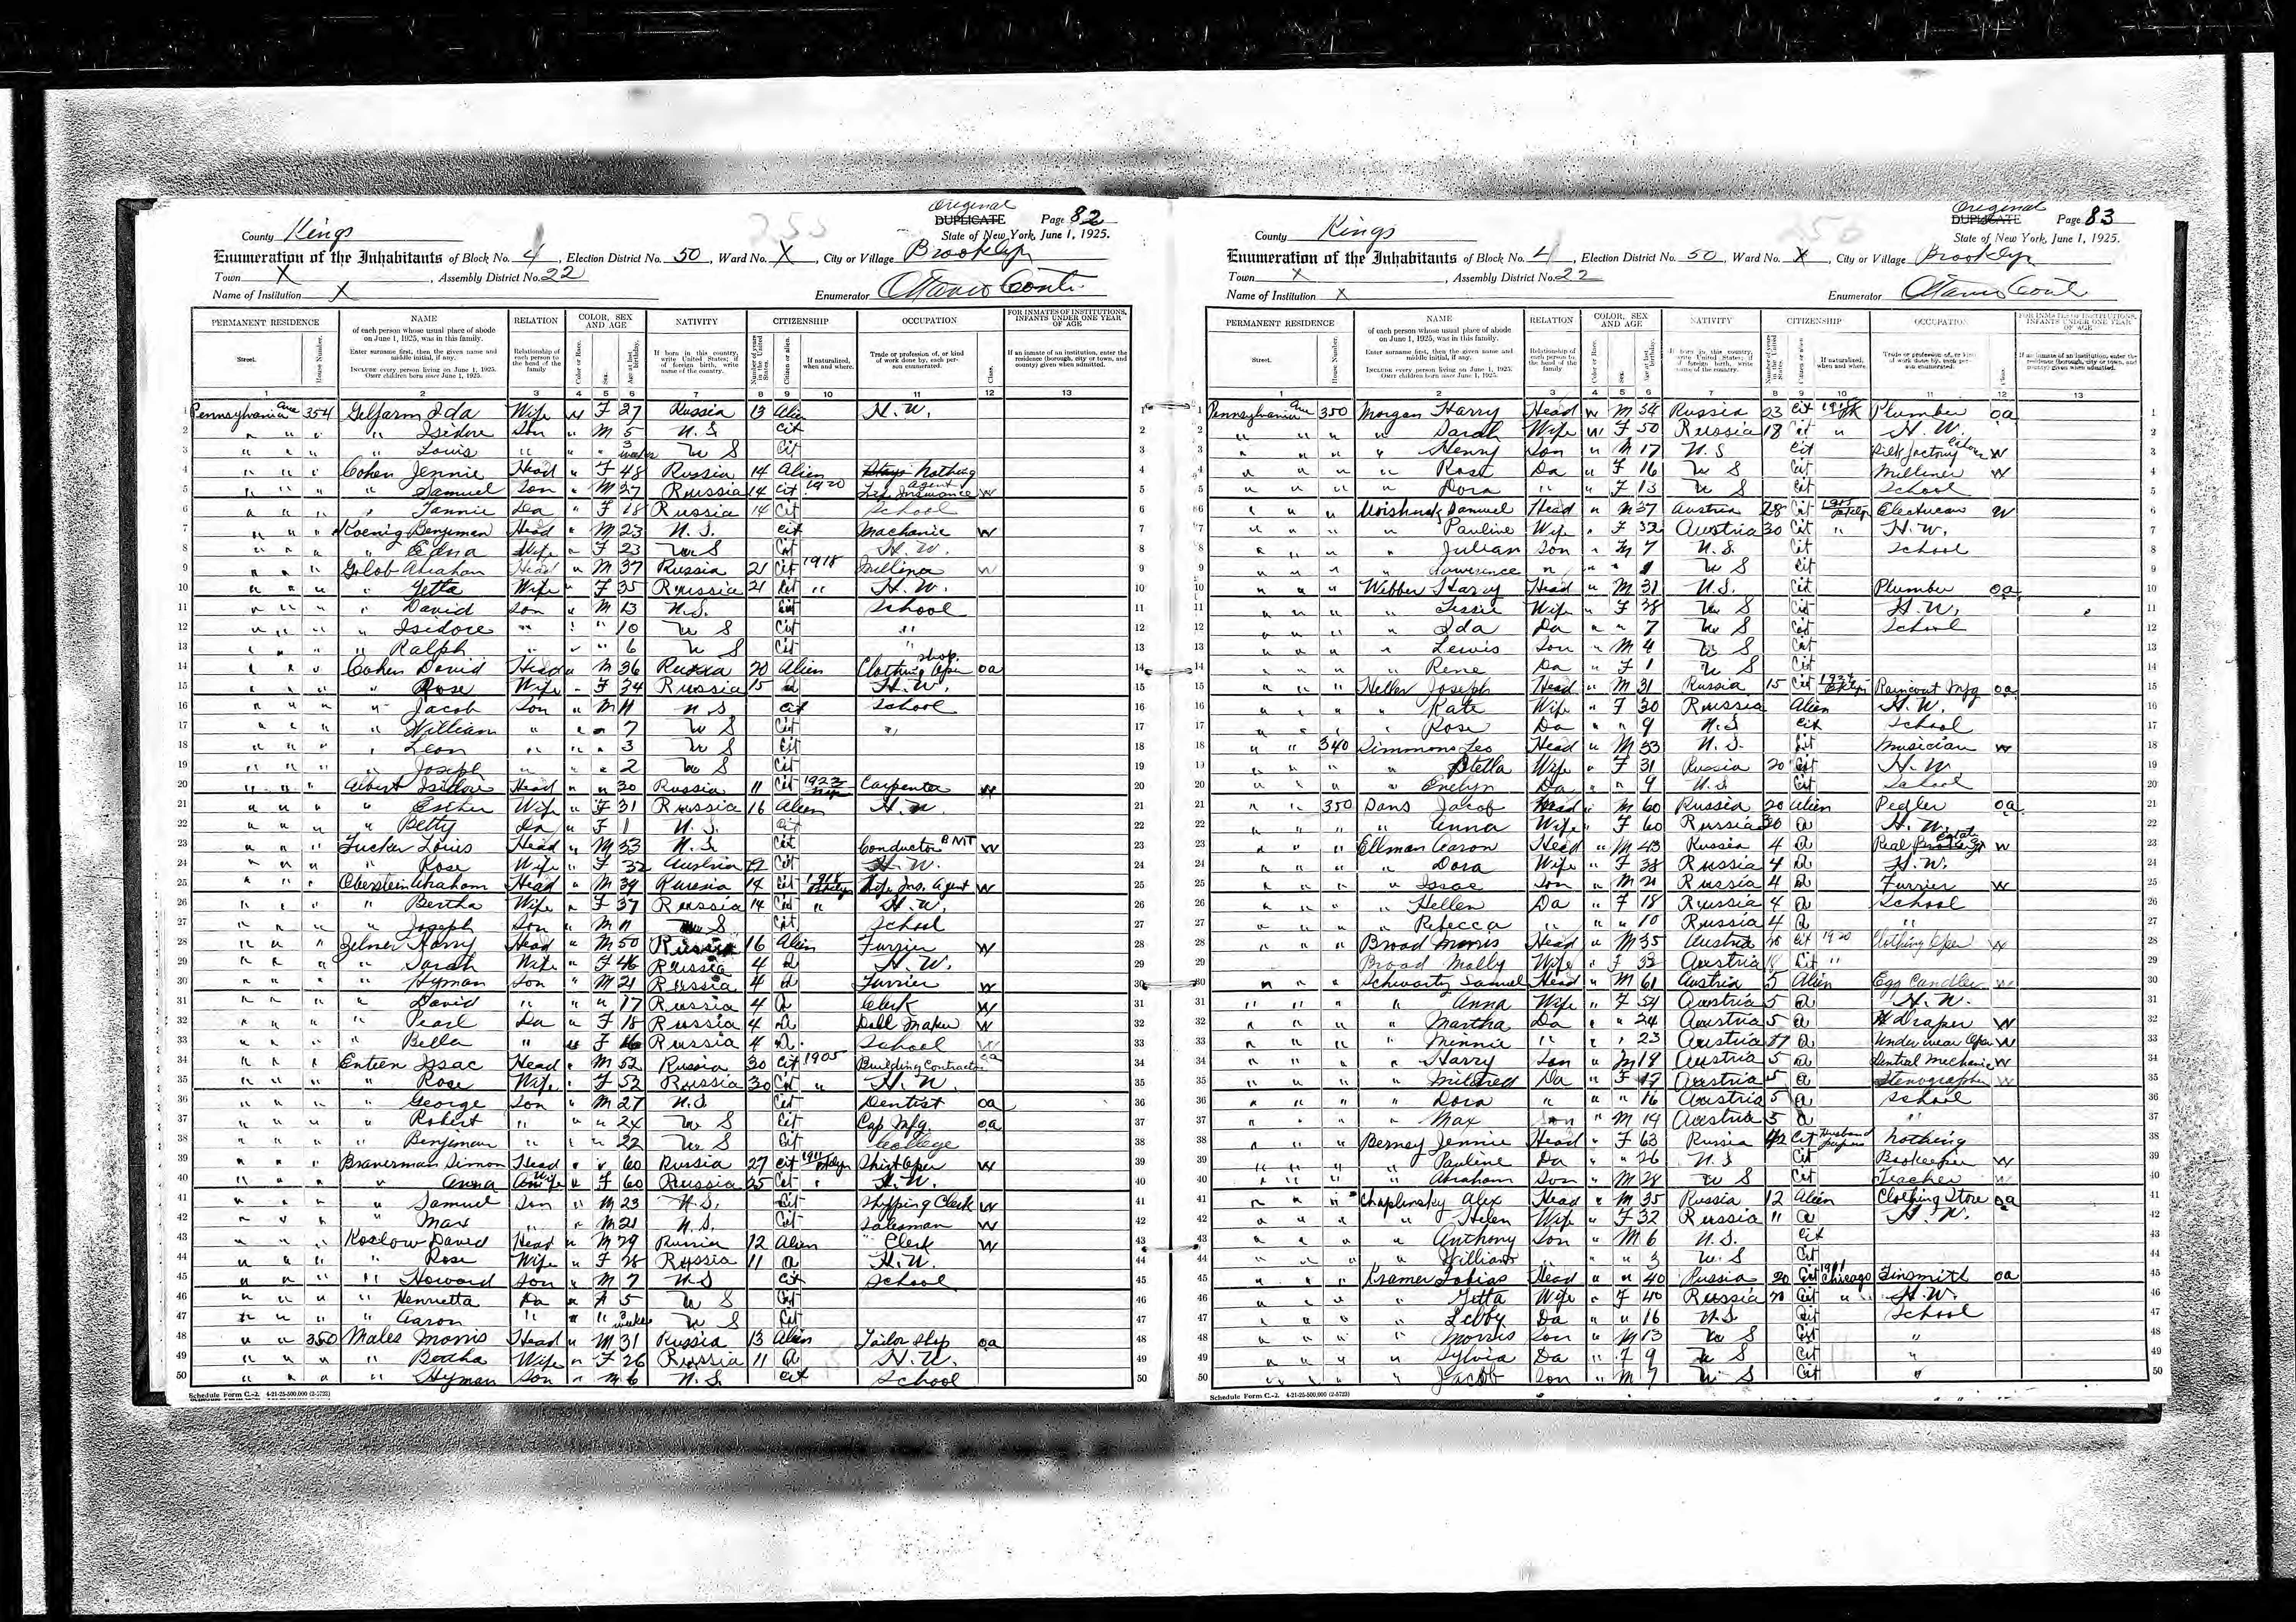 Original
DUPLICATE Page 82
County Kings State of New York, June 1, 1925.
Enumeration of the Inhabitants of Block No. 4, Election District No. 50, Ward No. X, City or Village Brooklyn
Town X, Assembly District No. 22
Name of Institution X Enumerator
PERMANENT RESIDENCE NAME RELATION COLOR, SEX AND AGE NATIVITY CITIZENSHIP OCCUPATION FOR INMATES OF INSTITUTIONS, INFANTS UNDER ONE YEAR OF AGE
1 Pennsylvania Ave 354 Gelfarm Ida Wife W F 27 Russia 13 Alien H.W.
2 " " " " Isidore Son " M 5 U.S. Cit
3 " " " " Louis " " " 3 weeks U S Cit
4 " " " Cohen Jennie Head " F 48 Russia 14 Alien Nothing
5 " " " " Samuel Son " M 27 Russia 14 Cit 1920 Insurance agent W
6 " " " " Fannie Da " F 18 Russia 14 Cit School
7 " " " Koenig Benjiman Head " M 23 U.S. Cit Machanic W
8 " " " " Edna Wife " F 23 U S Cit H.W.
9 " " " Golob Abraham Head " M 37 Russia 21 Cit 1918 W
10 " " " " Yetta Wife " F 35 Russia 21 Cit " H.W.
11 " " " " David Son " M 13 U.S. Cit School
12 " " " " Isidore " " " 10 U S Cit "
13 " " " " Ralph " " " 6 U S Cit "
14 " " " Cohen David Head " M 36 Russia 20 Alien Clothing Oper shop oa
15 " " " " Rose Wife " F 34 Russia 15 a H.W.
16 " " " " Jacob Son " M 11 U S Cit School
17 " " " " William " " " 7 U S Cit "
18 " " " " Leon " " " 3 U S Cit
19 " " " " Joseph " " " 2 U S Cit
20 " " " Albert Isidore Head " " 30 Russia 11 Cit 1922 Carpenter W
21 " " " " Esther Wife " F 31 Russia 16 Alien H.W.
22 " " " " Betty Da " F 1 U.S. Cit
23 " " " Tucker Louis Head " M 33 U.S. Cit Conductor BMT W
24 " " " " Rose Wife " F 32 Austria Cit H.W.
25 " " " Oberstein Abraham Head " M 39 Russia 14 Cit 1918 Bklyn Life Ins. Agent W
26 " " " " Bertha Wife " F 37 Russia 14 Cit " H.W.
27 " " " " Joseph Son " M 11 U S Cit School
28 " " " Zelner Harry Head " M 50 Russia 16 Alien Furrier W
29 " " " " Sarah Wife " F 46 Russia 4 a H.W.
30 " " " " Hyman Son " M 21 Russia 4 a Furrier W
31 " " " " David " " " 17 Russia 4 a Clerk W
32 " " " " Pearl Da " F 18 Russia 4 a Doll Maker W
33 " " " " Bella " " F 16 Russia 4 a School W
34 " " " Enteen Issac Head " M 52 Russia 30 Cit 1905 Building Contractor oa
35 " " " " Rose Wife " F 52 Russia 30 Cit " H.W.
36 " " " " George Son " M 27 U.S Cit Dentist oa
37 " " " " Robert " " " 24 U S Cit Cap Mfg. oa
38 " " " " Benjiman " " " 22 U S Cit College
39 " " " Braverman Simon Head " " 60 Russia 27 Cit 1911 Bklyn Shirt Oper W
40 " " " " Anna Wife " F 60 Russia 25 Cit " H.W.
41 " " " " Samuel Son " M 23 U.S. Cit Shipping Clerk W
42 " " " " Max " " M 21 U.S. Cit Salesman W
43 " " " Koslow David Head " M 29 Russia 12 Alien Clerk W
44 " " " " Rose Wife " F 28 Russia 11 a H.W.
45 " " " " Howard Son " M 7 U S Cit School
46 " " " " Henrietta Da " F 5 U S Cit
47 " " " " Aaron " " " 3 weeks U S Cit
48 " " 350 Males Morris Head " M 31 Russia 13 Alien Tailor Shop oa
49 " " " " Bertha Wife " F 26 Russia 11 a H.W.
50 " " " " Hyman Son " M 6 U.S. Cit School
Schedule Form C.-2. 4-21-25-500,000 (2-5723)
Original
DUPLICATE Page 83
County Kings State of New York, June 1, 1925.
Enumeration of the Inhabitants of Block No. 4, Election District No. 50, Ward No. X, City or Village Brooklyn
Town X, Assembly District No. 22
Name of Institution X Enumerator
PERMANENT RESIDENCE NAME RELATION COLOR, SEX AND AGE NATIVITY CITIZENSHIP OCCUPATION FOR INMATES OF INSTITUTIONS, INFANTS UNDER ONE YEAR OF AGE
1 Pennsylvania Ave 350 Morgan Harry Head W M 54 Russia 23 Cit Plumber oa
2 " " " " Sarah Wife W F 50 Russia 18 Cit " H.W.
3 " " " " Henry Son " M 17 U.S Cit Silk factory W
4 " " " " Rose Da " F 16 U S Cit Milliner W
5 " " " " Dora " " F 13 U S Cit School
6 " " " Samuel Head " M 37 Austria 28 Cit Electrican W
7 " " " " Pauline Wife " F 32 Austria 30 Cit " H.W.
8 " " " " Julian Son " M 7 U.S. Cit School
9 " " " " Lawerence " " " 1 U S Cit
10 " " " Webber Harry Head " M 31 U.S. Cit Plumber oa
11 " " " " Tessie Wife " F 28 U S Cit H.W.
12 " " " " Ida Da " " 7 U S Cit School
13 " " " " Lewis Son " M 4 U S Cit
14 " " " " Rene Da " F 1 U S Cit
15 " " " Heller Joseph Head " M 31 Russia 15 Cit Bklyn Raincoat Mfg oa
16 " " " " Kate Wife " F 30 Russia Alien H.W.
17 " " " " Rose Da " " 9 U.S Cit School
18 " " 340 Simmons Leo Head " M 33 U.S. Cit Musician W
19 " " " " Stella Wife " F 31 Russia 20 Cit H.W
20 " " " " Evelyn Da " " 9 U.S Cit School
21 " " 350 Dans Jacob Head " M 60 Russia 20 Alien Pedler oa
22 " " " " Anna Wife " F 60 Russia 20 a H.W.
23 " " " Ellman Aaron Head " M 43 Russia 4 a Real Estate W
24 " " " " Dora Wife " F 38 Russia 4 a H.W.
25 " " " " Issac Son " M 21 Russia 4 a Furrier W
26 " " " " Hellen Da " F 18 Russia 4 a School
27 " " " " Rebecca " " " 10 Russia 4 a "
28 " " " Broad Morris Head " M 35 Austria Cit 1920 Clothing Oper W
29 Broad Molly Wife " F 32 Austria Cit "
30 " " " Schwartz Samuel Head " M 61 Austria 5 Alien Egg Candler W
31 " " " " Anna Wife " F 54 Austria 5 a H.W.
32 " " " " Martha Da " " 24 Austria 5 a Draper W
33 " " " " Minnie " " " 23 Austria a Underwear Oper W
34 " " " " Harry Son " M 18 Austria 5 a Dential Mechanic W
35 " " " " Mildred Da " F 17 Austria 5 a Stenographer W
36 " " " " Dora " " " 16 Austria 5 a School
37 " " " " Max Son " M 14 Austria 5 a "
38 " " " Jennie Head " F 63 Russia 42 Cit Husband papers Nothing
39 " " " " Pauline Da " " 26 U.S Cit Bookeeper W
40 " " " " Abraham Son " M 28 U S Cit Teacher W
41 " " " Chaplinsky Alex Head " M 35 Russia 12 Alien Clothing Store oa
42 " " " " Helen Wife " F 32 Russia " a H.W.
43 " " " " Anthony Son " M 6 U.S. Cit
44 " " " " William " " " 3 U.S Cit
45 " " " Kramer Tobias Head " " 40 Russia 20 Cit 1911 Chicago Tinsmith oa
46 " " " " Yetta Wife " F 40 Russia 20 Cit " H.W.
47 " " " " Lebby Da " " 16 U.S Cit School
48 " " " " Morris Son " M 13 U S Cit "
49 " " " " Sylvia Da " F 9 U S Cit "
50 " " " " Jacob Son " M 7 U S Cit "
Schedule Form C.-2. 4-21-25-500,000 (2-5723)